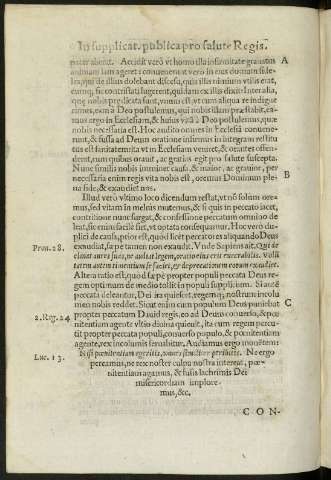 In supplicat. publica pro salute Regis.
pater abierit. Accidit verò vt homo illa infirmitate grauatus A
animam iam ageret: conuenerunt verò in eius domum fide-
les, qui de illius dolebant discessu, quia illis nimium vtilis erat,
cumq; sic contristati lugerent, quidam ex illis dixit: Inter alia,
quę nobis prædicata sunt, vnum est, vt cum aliqua re indige-
remus, eam à Deo postulemus, qui nobis illam præstabit, ea-
mus ergo in Ecclesiam, & huius vitã à Deo postulemus, quæ
nobis necessaria est. Hoc audito omnes in Ecclesiã conuene-
runt, & fusa ad Deum oratione infirmus in integram restitu
tus est sanitatem ita vt in Ecclesiam veniret, & orantes offen-
deret, cum quibus orauit, ac gratias egit pro salute suscepta.
Nunc similis nobis imminet causa, & maior, ac grauior, per
necessaria enim regis vita nobis est, oremus Dominum ple- B
na fide, & exaudiet nos.
Illud verò vltimo loco dicendum restat, vt nõ solum ore-
mus, sed vitam in melius mutemus, & si quis in peccato iacet,
contritione nunc surgat, & confessione peccatum omnino de
leat, sic enim facilè fiet, vt optata consequamur. Hoc vero du-
plici de causa, prior est, quod licet peccatores aliquando Deus
Prou. 28. exaudiat, sæpe tamen non exaudit. Vnde Sapiens ait. Qui de
clinat aures suas, ne audiat legem, oratio eius erit execrabilis. Voluit
tactum autem si mentionem se faciet, & deprecationem eorum exaudiet.
Altera ratio est, quod sæpè propter populi peccata Deus re-
gem optimum de medio tollit in populi suppliciũ. Si ancte
peccata deleantur, Dei ira quiescet, regemq; nostrum incolu
mem nobis reddet. Sicut enim cum populum Deus puniebat C
2. Reg. 24 propter peccatum Dauid regis, eo ad Deum conuerso, & pœ-
nitentiam agente vltio diuina quieuit, ita cum regem percu-
tit propter peccata populi, conuerso populo, & pœnitentiam
agente, rex incolumis seruabitur. Audiamus ergo mouentem:
Luc. 13. Nisi pœnitentiam egeritis, omnes similiter peribitis. Ne ergo
pereamus, ne rex noster culpa nostra intereat, pœ-
nitentiam agamus, & fusis lachrimis Dei
misericordiam implore-
mus, &c.
CON-